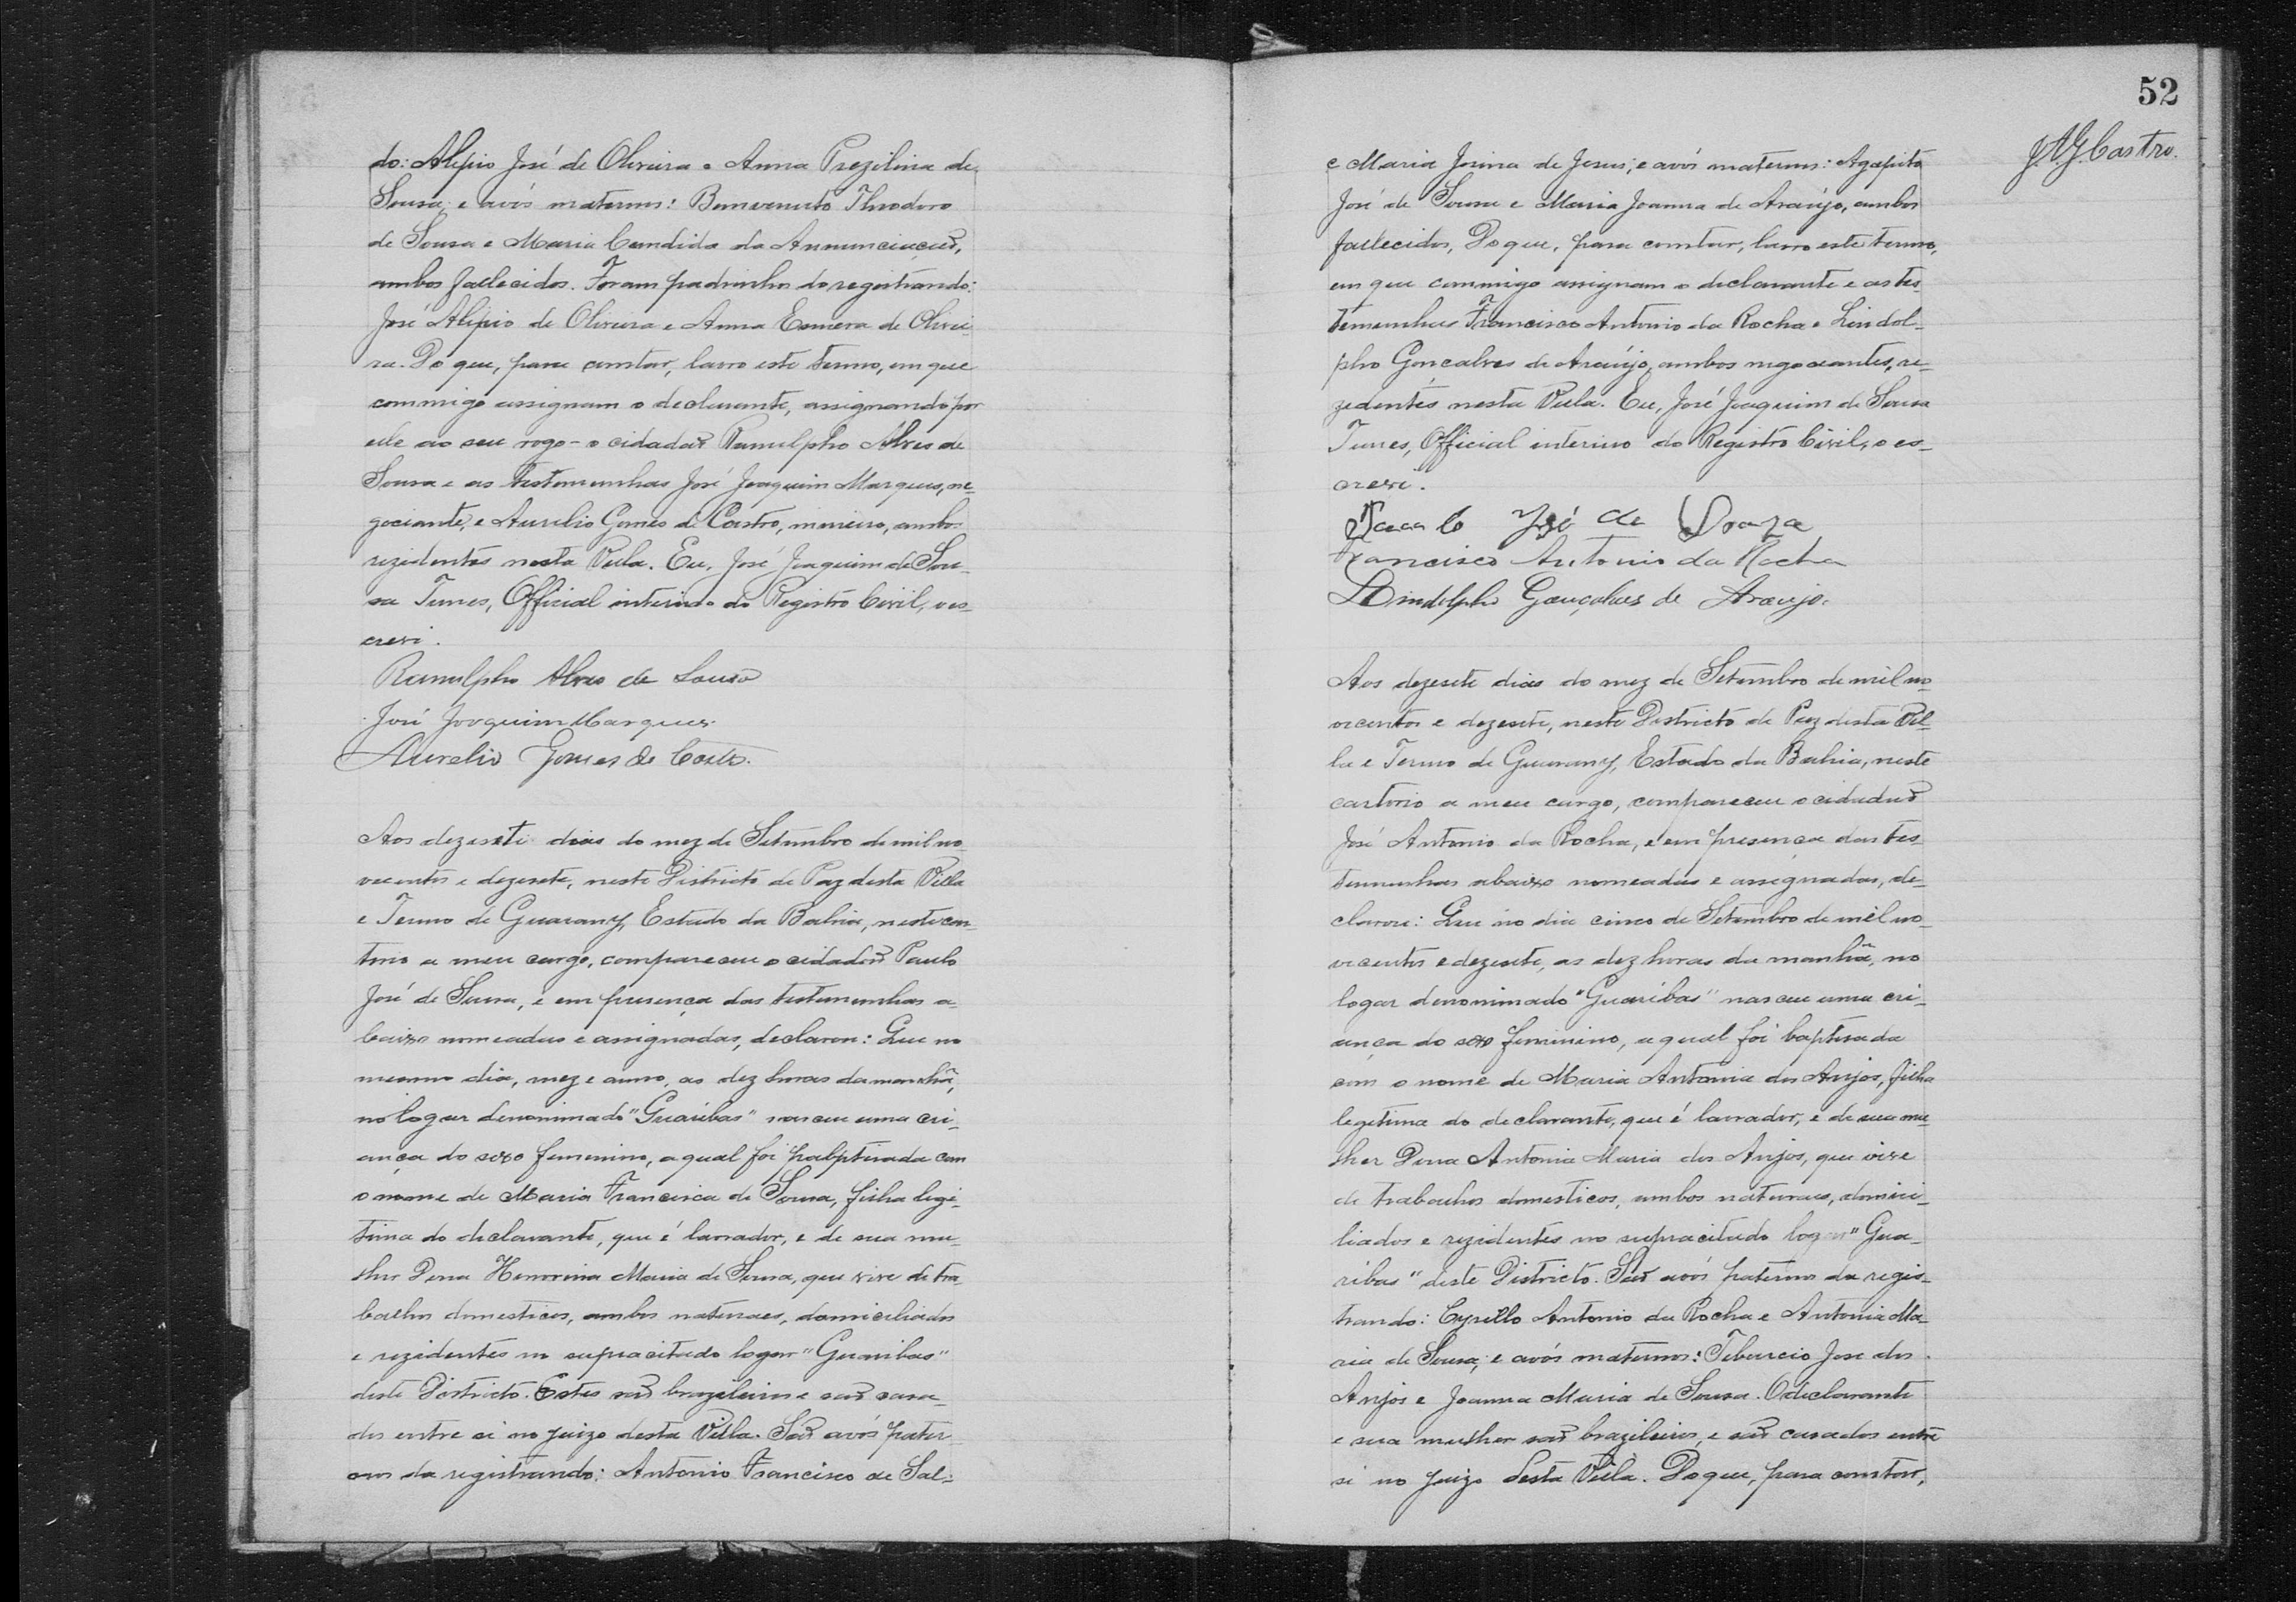 do: Alipio José de Oliveira e Anna Prezilina de
Sousa; e avós maternos: Bemvenuto Theodoro
de Sousa e Maria Candida da Annunciação,
ambos fallecidos. Foram padrinhos do registrando:
José Alipio de Oliveira e Anna Esmera de Olivei-
ra. Do que, para constar, lavro este termo, em que
commigo assignam o declarante, assignando por
elle ao seu rogo - o cidadão Ranulpho Alves de
Sousa e as testemunhas José Joaquim Marques, ne-
gociante, e Aurelio Gomes de Castro, ambos
rezidentes nesta Villa. Eu, José Joaquim de Sou-
sa Tunes, Official interino do Registro Civil, o es-
crevi.
Ranulpho Alves de Souza
José Joaquim Marques.
Aurelio Gomes de Castro.
Aos dezesete dias do mez de Setembro de mil no-
vecentos e dezesete, neste Districto de Paz desta Villa
e Termo de Guarany, Estado da Bahia, neste car-
torio a meu cargo, compareceu o cidadão Paulo
José de Sousa, e em presença das testemunhas a-
baixo nomeadas e assignadas, declarou: Que no
mesmo dia, mez e anno, as dez horas da manhã,
no logar denominado "Guaribas" nasceu uma cri-
ança do sexo femenino, a qual foi palptisada com
o nome de Maria Francisca de Sousa, filha legi-
tima do declarante, que é lavrador, e de sua mu-
lher Dona Honorina Maria de Sousa, que vive de tra-
balhos domesticos, ambos naturaes, domiciliados
e rezidentes no supracitado logar "Guaribas"
deste Districto. Estes são brazileiros e são casa-
dos entre si no juizo desta Villa. São avós pater-
nos da registrando: Antonio Francisco de Sal-
52
J.A.G. Castro.
e Maria Josina de Jesus; e avós maternos: Agapito
José de Sousa e Maria Joanna de Araújo, ambos
fallecidos. Do que, para constar, lavro este termo,
em que commigo assignam o declarante e as tes-
temunhas Francisco Antonio da Rocha e Lindol-
pho Gonçalves de Araújo, ambos negociantes, re-
zedentes nesta Villa. Eu, José Joaquim de Sousa
Tunes, Official interino do Registro Civil, o es-
crevi.
Paulo José de Souza
Francisco Antonio da Rocha
Lindolpho Gonçalves de Araujo.
Aos dezesete dias do mez de Setembro de mil no-
vecentos e dezesete, neste Districto de Paz desta Vil-
la e Termo de Guarany, Estado da Bahia, neste
cartorio a meu cargo, compareceu o cidadão
José Antonio da Rocha, e em presença das tes-
temunhas abaixo nomeadas e assignadas, de-
clarou: Que no dia cinco de Setembro de mil no-
vecentos e dezesete, as dez horas da manhã, no
logar denominado "Guaribas" nasceu uma cri-
ança do sexo feminino, a qual foi baptisada
com o nome de Maria Antonia dos Anjos, filha
legitima do declarante, que é lavrador, e de sua mu-
lher Dona Antonia Maria dos Anjos, que vive
de trabalhos domesticos, ambos naturaes, domici-
liados e rezidentes no supracitado logar "Gua-
ribas" deste Districto. São avós paternos da regis-
trando: Cyrillo Antonio da Rocha e Antonia Ma-
ria de Sousa; e avós maternos: Tiburcio José dos
Anjos e Joanna Maria de Sousa. O declarante
e sua mulher são brazileiros, e são casados entre
si no juizo desta Villa. Do que, para constar,